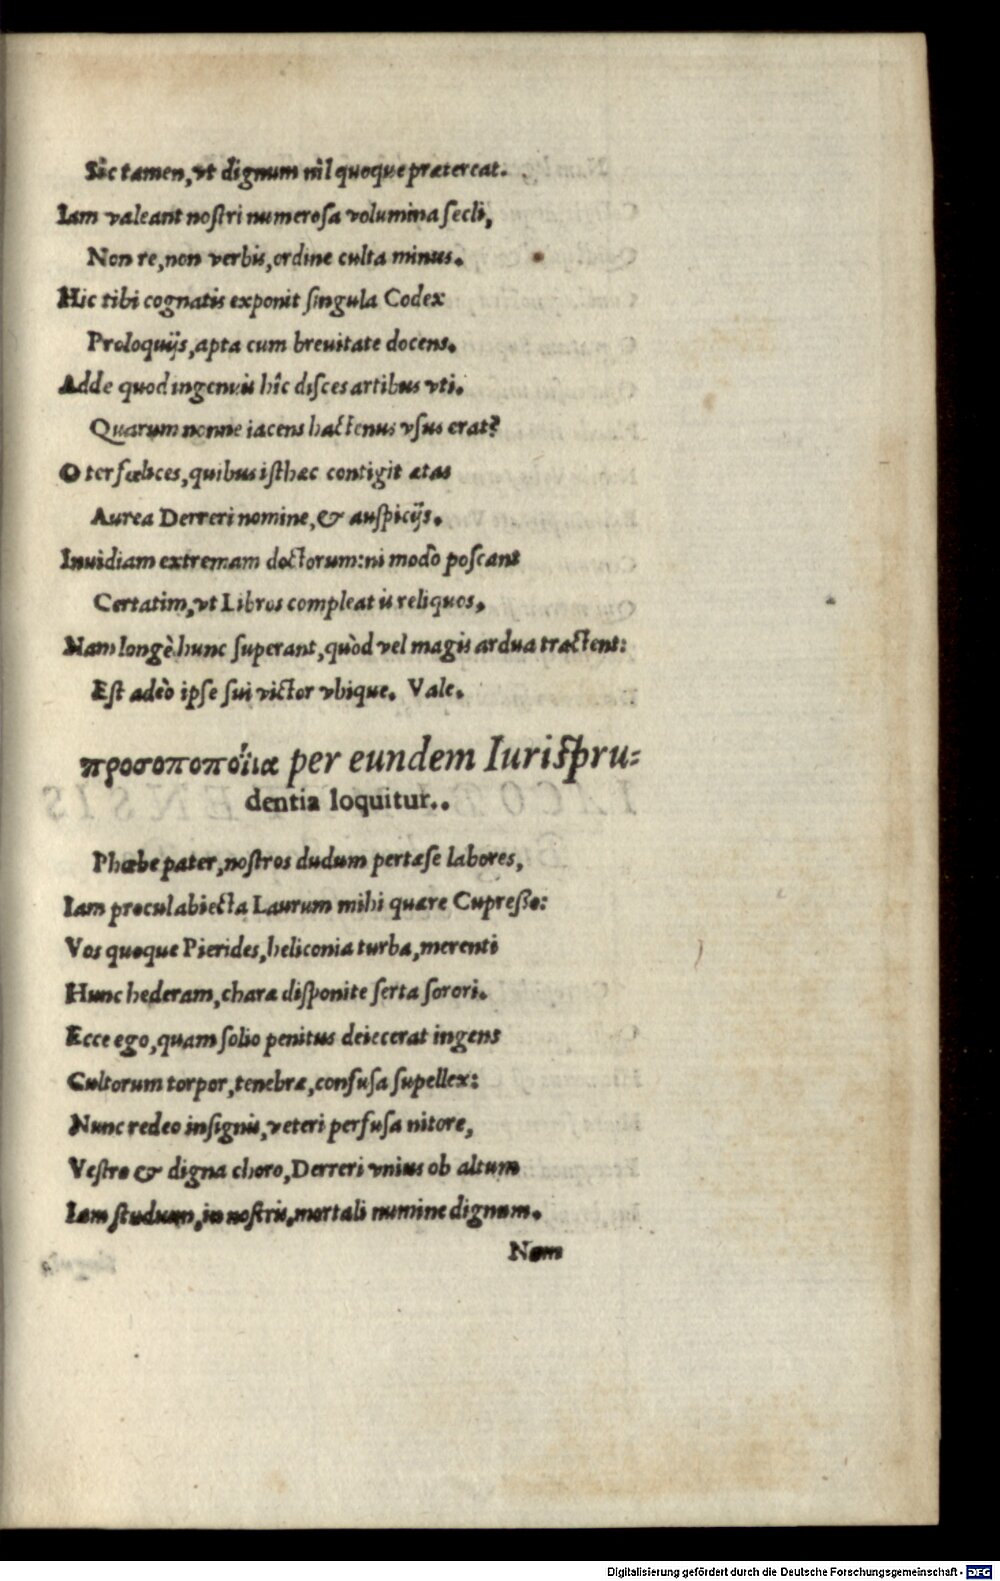 Sîc tamen, vt dignum nîl quoque prætereat.
Iam valeant nostri numerosa volumina secli,
Non re, non verbis, ordine culta minus.
Hic tibi cognatis exponit singula Codex
Proloquijs, apta cum breuitate docens.
Adde quod ingenuis hîc disces artibus vti.
Quarum nonne iacens hactenus vsus erat?
O ter fœlices, quibus isthæc contigit ætas
Aurea Derreri nomine, & auspicijs.
Inuidiam extremam doctorum: ni modò poscant
Certatim, vt Libros compleat is reliquos,
Nam longè hunc superant, quòd vel magis ardua tractent:
Est adeò ipse sui victor vbique. Vale.
προσοποποΐια per eundem Iurispru=
dentia loquitur..
Phœbe pater, nostros dudum pertæse labores,
Iam procul abiecta Laurum mihi quære Cupresso:
Vos quoque Pierides, heliconia turba, merenti
Hunc hederam, charæ disponite serta sorori.
Ecce ego, quam solio penitus deiecerat ingens
Cultorum torpor, tenebræ, confusa supellex:
Nunc redeo insignis, veteri perfusa nitore,
Vestro & digna choro, Derreri vnius ob altum
Iam studium, in nostris, mortali numine dignum.
Nam
Digitalisierung gefördert durch die Deutsche Forschungsgemeinschaft - DFG